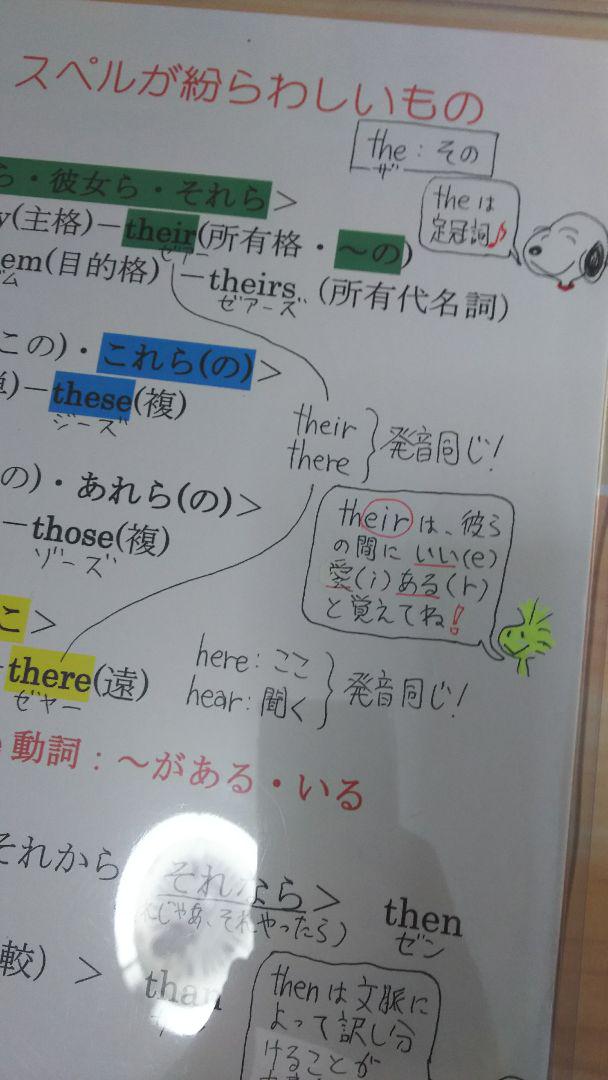 スペルが紛らわしいもの
the : その
ザ
theは
定冠詞♪
ら・彼女ら・それら>
y(主格)−their(所有格・〜の)
ゼアー
em(目的格) −theirs (所有代名詞)
ム ゼアーズ
この)・これら(の)>
−these(複)
ジーズ
their
there
発音同じ!
の)・あれら(の)>
−those(複)
ゾーズ
theirは、彼ら
の間にいい(e)
愛(i)ある(r)
と覚えてね!
こ>
−there(遠)
ゼヤー
here:ここ
hear:聞く
発音同じ!
動詞:〜がある・いる
それから
それなら>
じゃあ、それやったら)
then
ゼン
較) >
than
thenは文脈に
よって訳し分
けることが